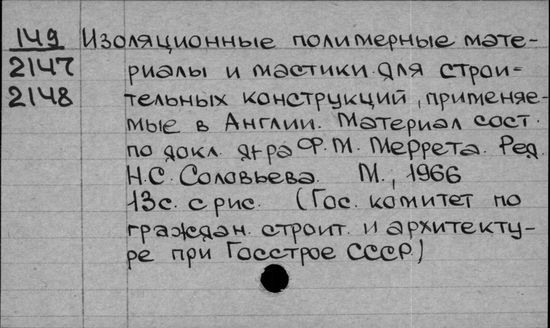 149 Изоляционные полимерные мате-
2147 риалы и мастики для строи-
2148 тельных конструкций, применяе-
мые в Англии. Материал сост.
по докл. д-ра Ф.М. Меррета. Ред.
Н.С. Соловьева. М., 1966
13с. с рис. (Гос. комитет по
граждан. строит. и архитекту-
ре при Госстрое СССР)